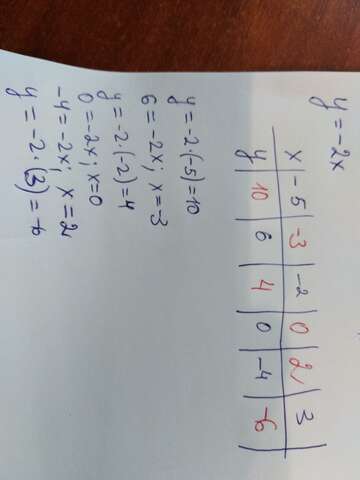 y = -2x
x | -5 | -3 | -2 | 0 | 2 | 3 |
y | 10 | 6 | 4 | 0 | -4 | -6 |
y = -2·(-5) = 10
6 = -2x; x = -3
y = -2·(-2) = 4
0 = -2x; x = 0
-4 = -2x; x = 2
y = -2·(3) = -6